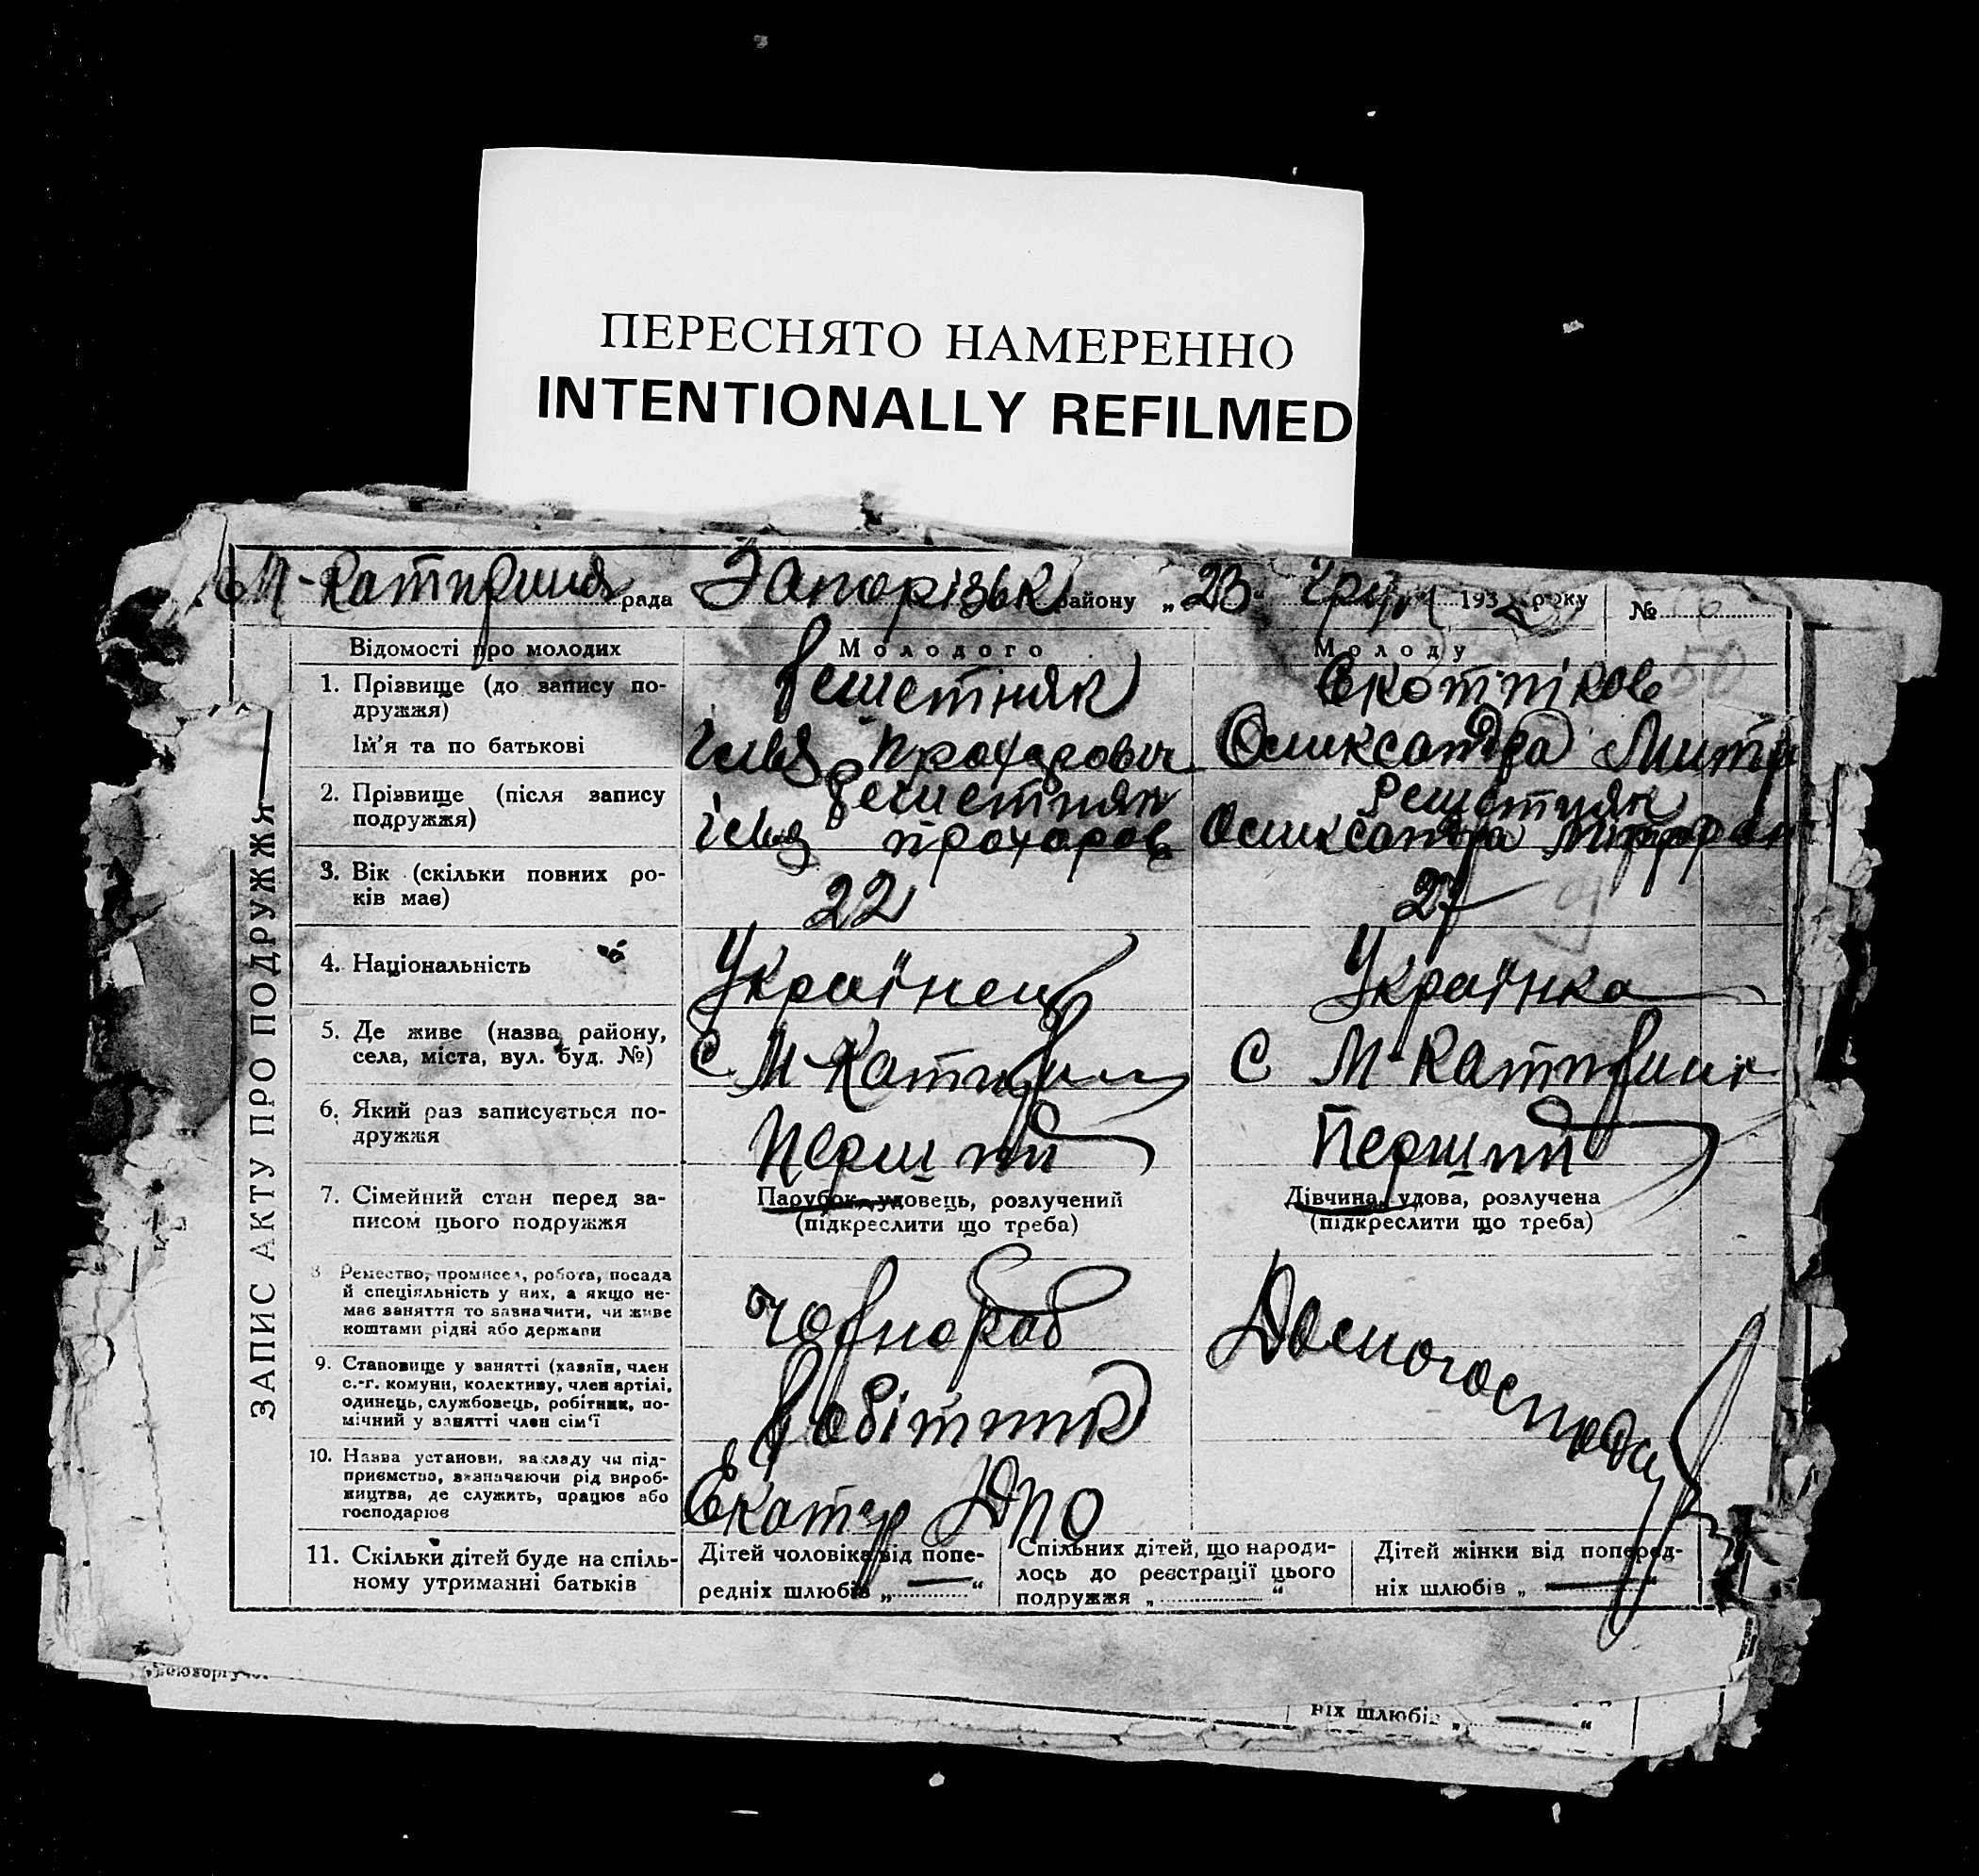 ПЕРЕСНЯТО НАМЕРЕННО
INTENTIONALLY REFILMED
М-Катирина рада Запорізьк району „23“ 1932 року №
Відомості про молодих Молодого Молоду
1. Прізвище (до запису по-
дружжя)
Решетняк
50
Ім'я та по батькові
Прохорович
2. Прізвище (після запису
подружжя)
Решетняк Решетняк
прохоров
3. Вік (скільки повних ро-
ків має)
22 27
4. Національність Українець Українка
5. Де живе (назва району,
села, міста, вул. буд. №)
С М-Катирин С М-Катирині
6. Який раз записується по-
дружжя
Перший Перший
7. Сімейний стан перед за-
писом цього подружжя
Парубок, удовець, розлучений
(підкреслити що треба)
Дівчина, удова, розлучена
(підкреслити що треба)
8 Ремество, промисел, робота, посада
й спеціяльність у них, а якщо не-
має заняття то зазначити, чи живе
коштами рідні або держави
Чорнороб
9. Становище у занятті (хазяїн, член
с.-г. комуни, колективу, член артілі,
одинець, службовець, робітник, по-
мічний у занятті член сім'ї
Робітник
10. Назва установи, закладу чи під-
приємства, зазначаючи рід вироб-
ництва, де служить, працює або
господарює
Екатер
11. Скільки дітей буде на спіль-
ному утриманні батьків
Дітей чоловіка від попе-
редніх шлюбів „ “
Спільних дітей, що народи-
лось до реєстрації цього
подружжя „ “
Дітей жінки від поперед-
ніх шлюбів „ “
ЗАПИС АКТУ ПРО ПОДРУЖЖЯ
ніх шлюбів „ “